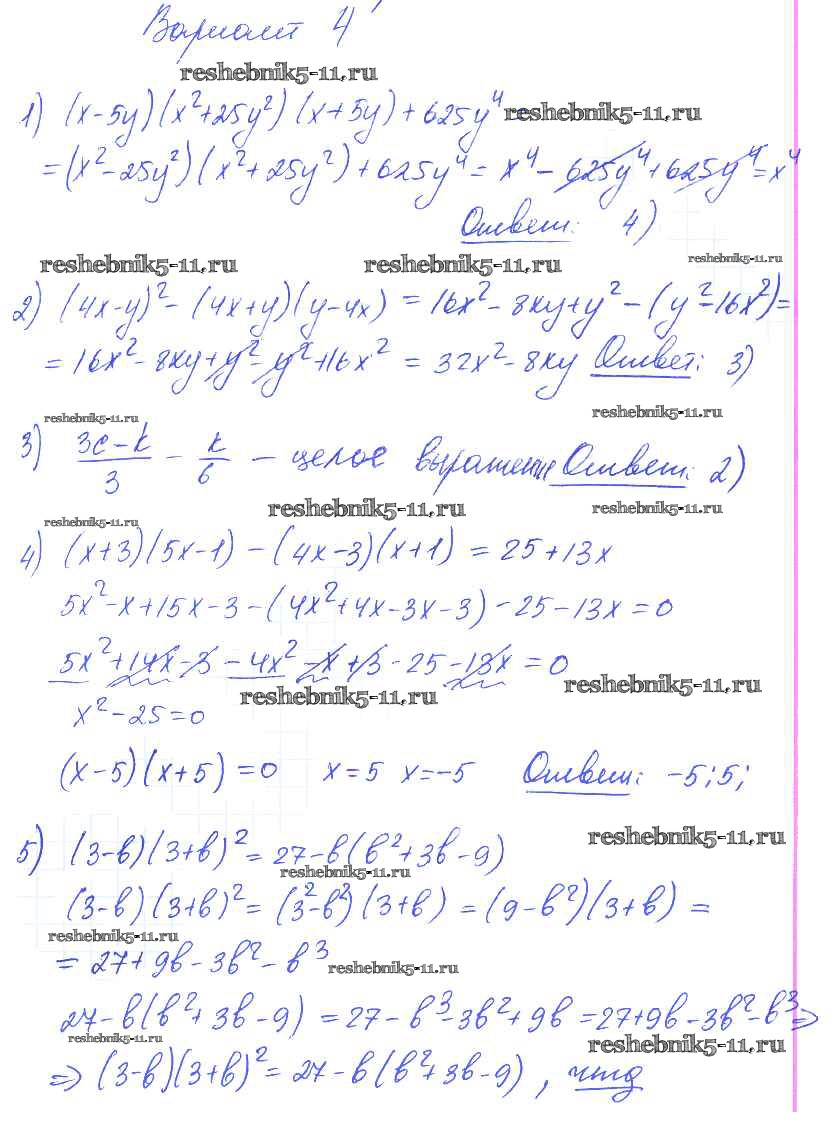 Вариант 4
reshebnik5-11.ru
1) (x-5y)(x²+25y²)(x+5y)+625y⁴= reshebnik5-11.ru
=(x²-25y²)(x²+25y²)+625y⁴= x⁴-625y⁴+625y⁴=x⁴
Ответ: 4)
reshebnik5-11.ru reshebnik5-11.ru reshebnik5-11.ru
2) (4x-y)²-(4x+y)(y-4x) = 16x²-8xy+y²-(y²-16x²)=
= 16x²-8xy+y²-y²+16x² = 32x²-8xy Ответ: 3)
reshebnik5-11.ru reshebnik5-11.ru
3) (3c-k)/3 - k/6 - целое выражение Ответ: 2)
reshebnik5-11.ru reshebnik5-11.ru reshebnik5-11.ru
4) (x+3)(5x-1)-(4x-3)(x+1) = 25+13x
5x²-x+15x-3-(4x²+4x-3x-3)-25-13x=0
5x²+14x-3-4x²-x+3-25-13x=0
reshebnik5-11.ru reshebnik5-11.ru
x²-25=0
(x-5)(x+5)=0 x=5 x=-5 Ответ: -5; 5;
reshebnik5-11.ru
5) (3-b)(3+b)²=27-b(b²+3b-9)
reshebnik5-11.ru
(3-b)(3+b)²=(3²-b²)(3+b)=(9-b²)(3+b)=
reshebnik5-11.ru
= 27+9b-3b²-b³ reshebnik5-11.ru
27-b(b²+3b-9)=27-b³-3b²+9b=27+9b-3b²-b³ ⇒
reshebnik5-11.ru reshebnik5-11.ru
⇒ (3-b)(3+b)²=27-b(b²+3b-9), чтд